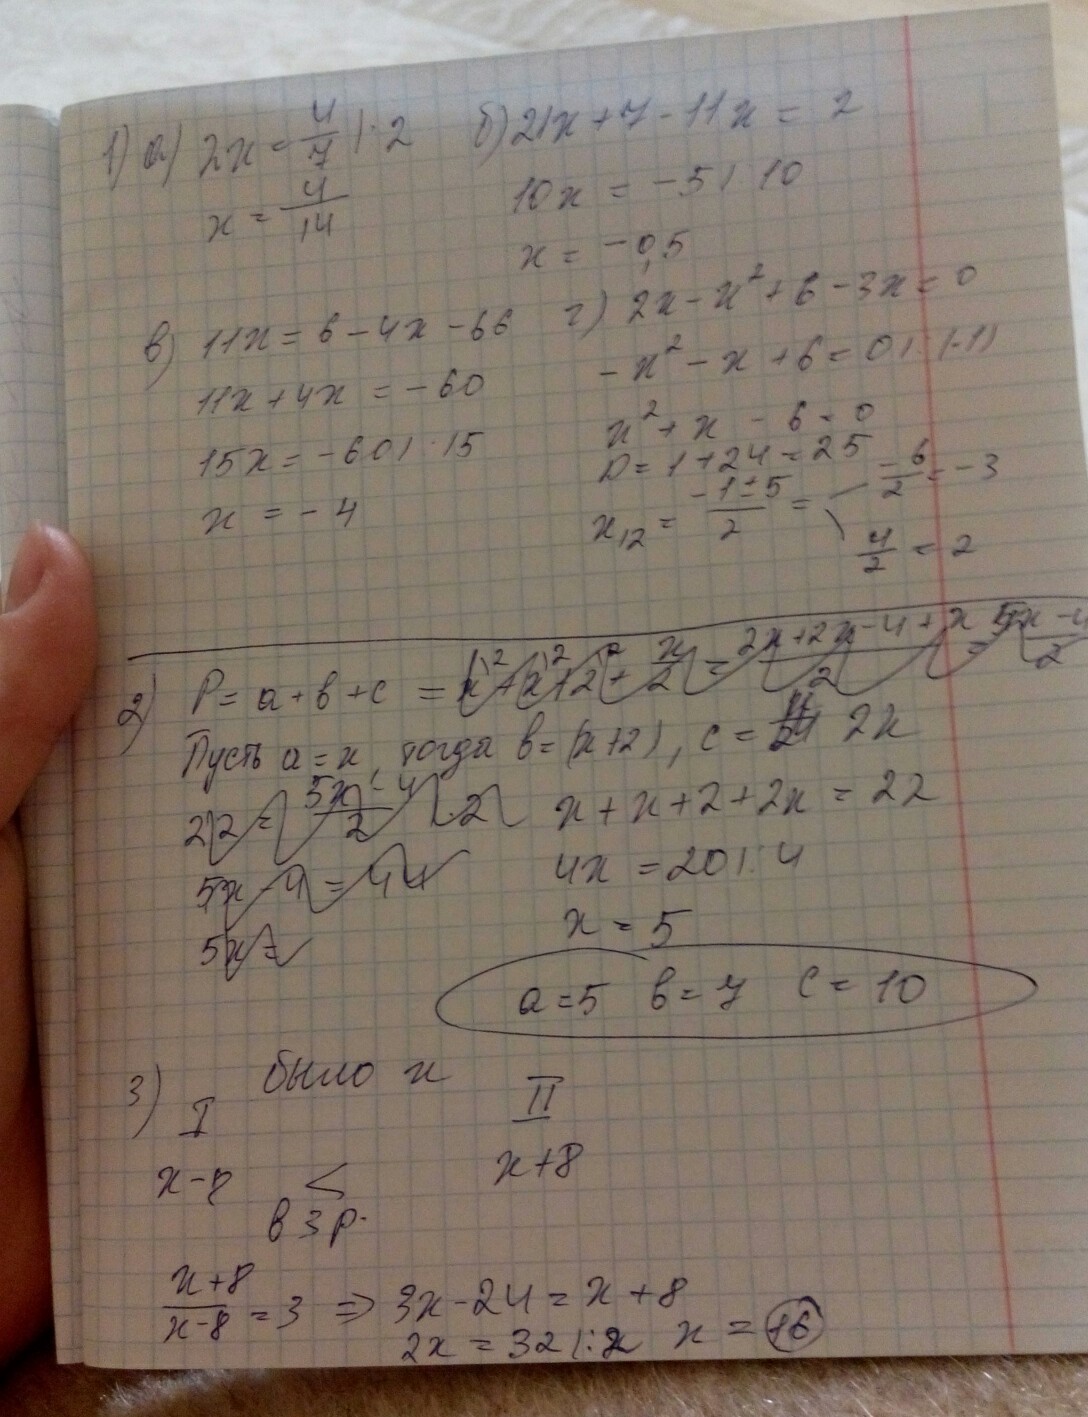 1) а) 2x = 4/7 |:2
x = 4/14
б) 21x + 7 - 11x = 2
10x = -5 |:10
x = -0,5
в) 11x = 6 - 4x - 66
11x + 4x = -60
15x = -60 |:15
x = -4
г) 2x - x² + 6 - 3x = 0
-x² - x + 6 = 0 |:(-1)
x² + x - 6 = 0
D = 1 + 24 = 25
x₁₂ = (-1 ± 5)/2 = -6/2 = -3
4/2 = 2
2) P = a + b + c =
Пусть a = x, тогда b = (x+2), c = 2x
22 = (5x - 4)/2 |·2
5x - 4 = 44
5x =
x + x + 2 + 2x = 22
4x = 20 |:4
x = 5
a = 5 b = 7 c = 10
3) было x
I II
x-8 < x+8
в 3 р.
(x+8)/(x-8) = 3 => 3x - 24 = x + 8
2x = 32 |:2 x = 16